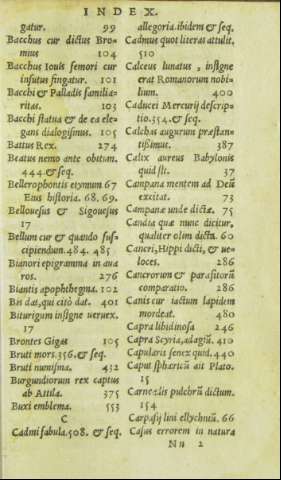 INDEX.
gatur. 99
Bacchus cur dictus Bromius 104
Bacchus Iouis femori cur
insutus fingatur. 101
Bacchi & Palladis familiaritas. 103
Bacchi statua & de ea elegans dialogismus. 105
Battus Rex. 274
Beatus nemo ante obitum.
444. & seq.
Bellerophontis etymum 67
Eius historia. 68. 69.
Bellouesus & Sigouesus
17
Bellum cur & quando suscipiendum. 484. 485
Bianori epigramma in auaros. 276
Biantis apophthegma. 102
Bis dat, qui citò dat. 401
Biturigum insigne veruex.
17
Brontes Gigas 105
Bruti mors. 356. & seq.
Bruti numisma. 432
Burgundiorum rex captus
ab Attila. 375
Buxi emblema. 553
C
Cadmi fabula. 508. & seq.
allegoria. ibidem & seq.
Cadmus quot literas attulit.
510
Calceus lunatus, insigne
erat Romanorum nobilium. 400
Caducei Mercurij descriptio. 354. & seq.
Calchas augurum præstantißimus. 387
Calix aureus Babylonis
quid sit. 37
Campana mentem ad Deũ
excitat. 73
Campanæ unde dictæ. 75
Candia quæ nunc dicitur,
qualiter olim dicta. 60
Cancri, Hippi dicti, & ueloces. 286
Cancrorum & parasitorũ
comparatio. 286
Canis cur iactum lapidem
mordeat. 480
Capra libidinosa 246
Capra Scyria, adagiũ. 410
Capularis senex quid. 440
Caput sphæricũ ait Plato.
15
Carneolis pulchrũ dictum.
154
Carpasij lini ellychniũ. 66
Casus errorem in natura
Nn 2